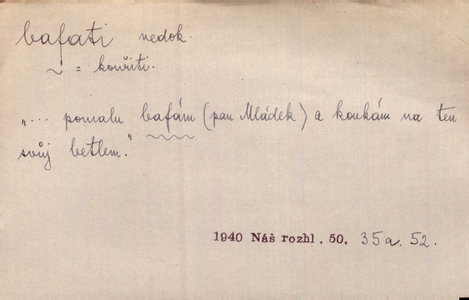 bafati nedok.
~ = kouřiti.
„... pomalu bafám (pan Mládek) a koukám na ten
svůj betlem."
1940 Náš rozhl. 50. 35a. 52.